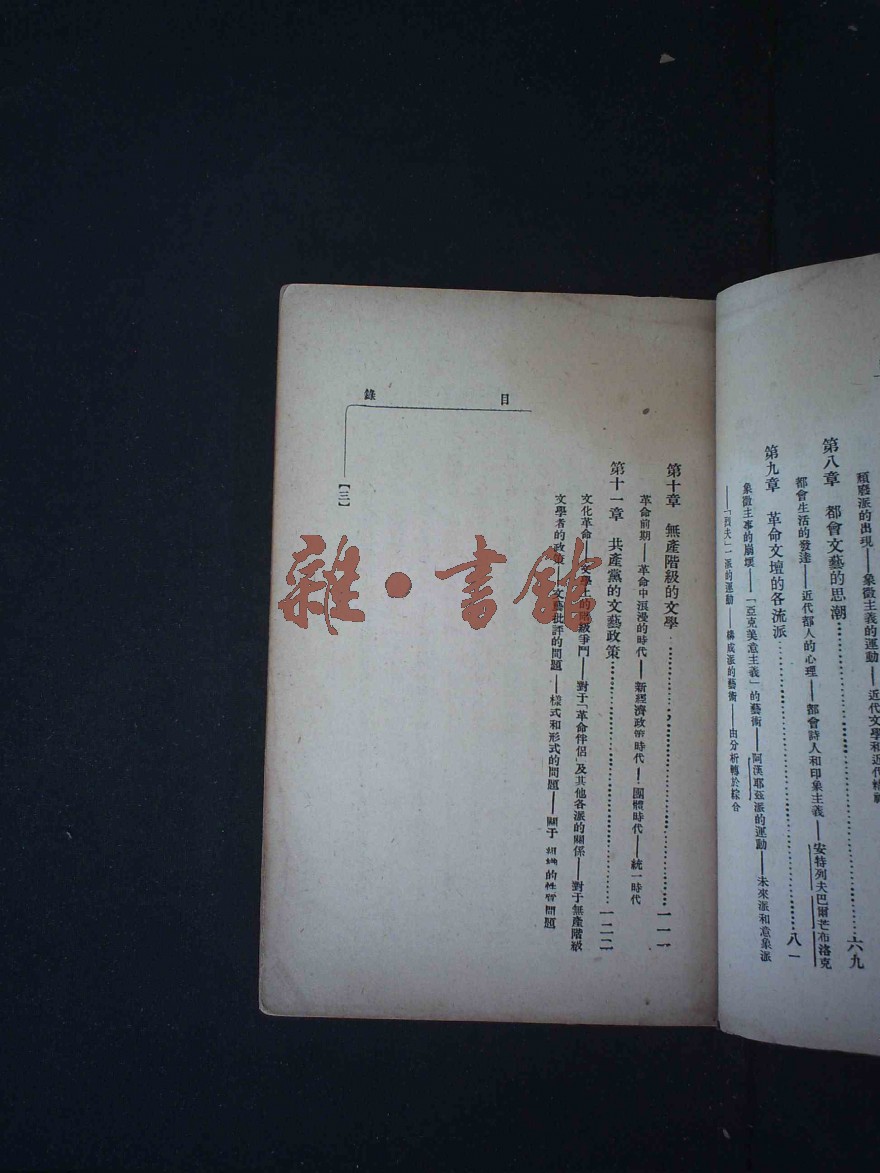 頹廢派的出現——象徵主義的運動——近代文學和近代精神
第八章 都會文藝的思潮……六九
都會生活的發達——近代都人的心理——都會詩人和印象主義——安特列夫巴爾芒布洛克
第九章 革命文壇的各流派……八一
象徵主事的崩壞——「亞克美意主義」的藝術——阿漢耶茲派的運動——未來派和意象派
——「烈夫」一派的運動——構成派的藝術——由分析轉於綜合
目錄
第十章 無產階級的文學……一一一
革命前期——革命中浪漫的時代——新經濟政策時代——團體時代——統一時代
第十一章 共產黨的文藝政策……一二二
文化革命——文學上的階級爭鬥——對于「革命伴侶」及其他各派的關係——對于無產階級
文學者的政策——文藝批評的問題——樣式和形式的問題——關于組織的性質問題
【三】
雜·書館